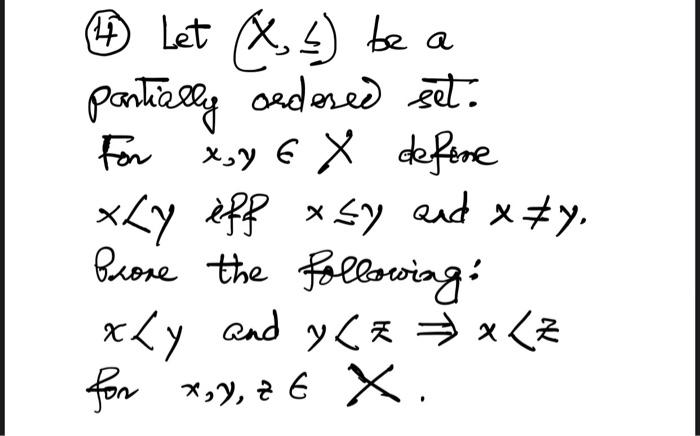 ④ Let (X, ≤) be a
partially ordered set.
For x, y ∈ X define
x<y iff x ≤ y and x ≠ y.
Prove the following:
x<y and y<z ⇒ x<z
for x, y, z ∈ X.